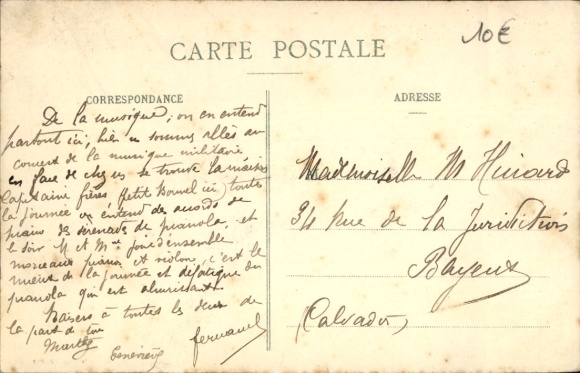 10€
CARTE POSTALE
CORRESPONDANCE
ADRESSE
De la musique, on en entend
partout ici, hier n sommes allés au
concert de la musique militaire
en face de chez ns se trouve la maison
Capitaine frères, Petit Bowel ici, toute
la journée on entend des accords de
piano des serenades de pianola, et
le soir M et Mme joue d'ensemble
morceaux piano et violon, c'est le
mieux de la journée et
pianola qui est ahurissant.
Baisers à toutes les deux de
la part de
Geneviève
fernand
Mademoiselle M Huard
34 Rue de la Juridiction
Bayeux
(Calvados)